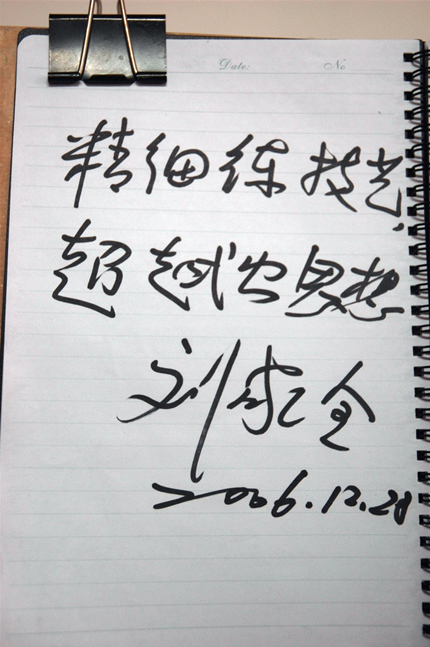 Date: No
精细练技艺,
超越出思想
刘成全
2006.12.28